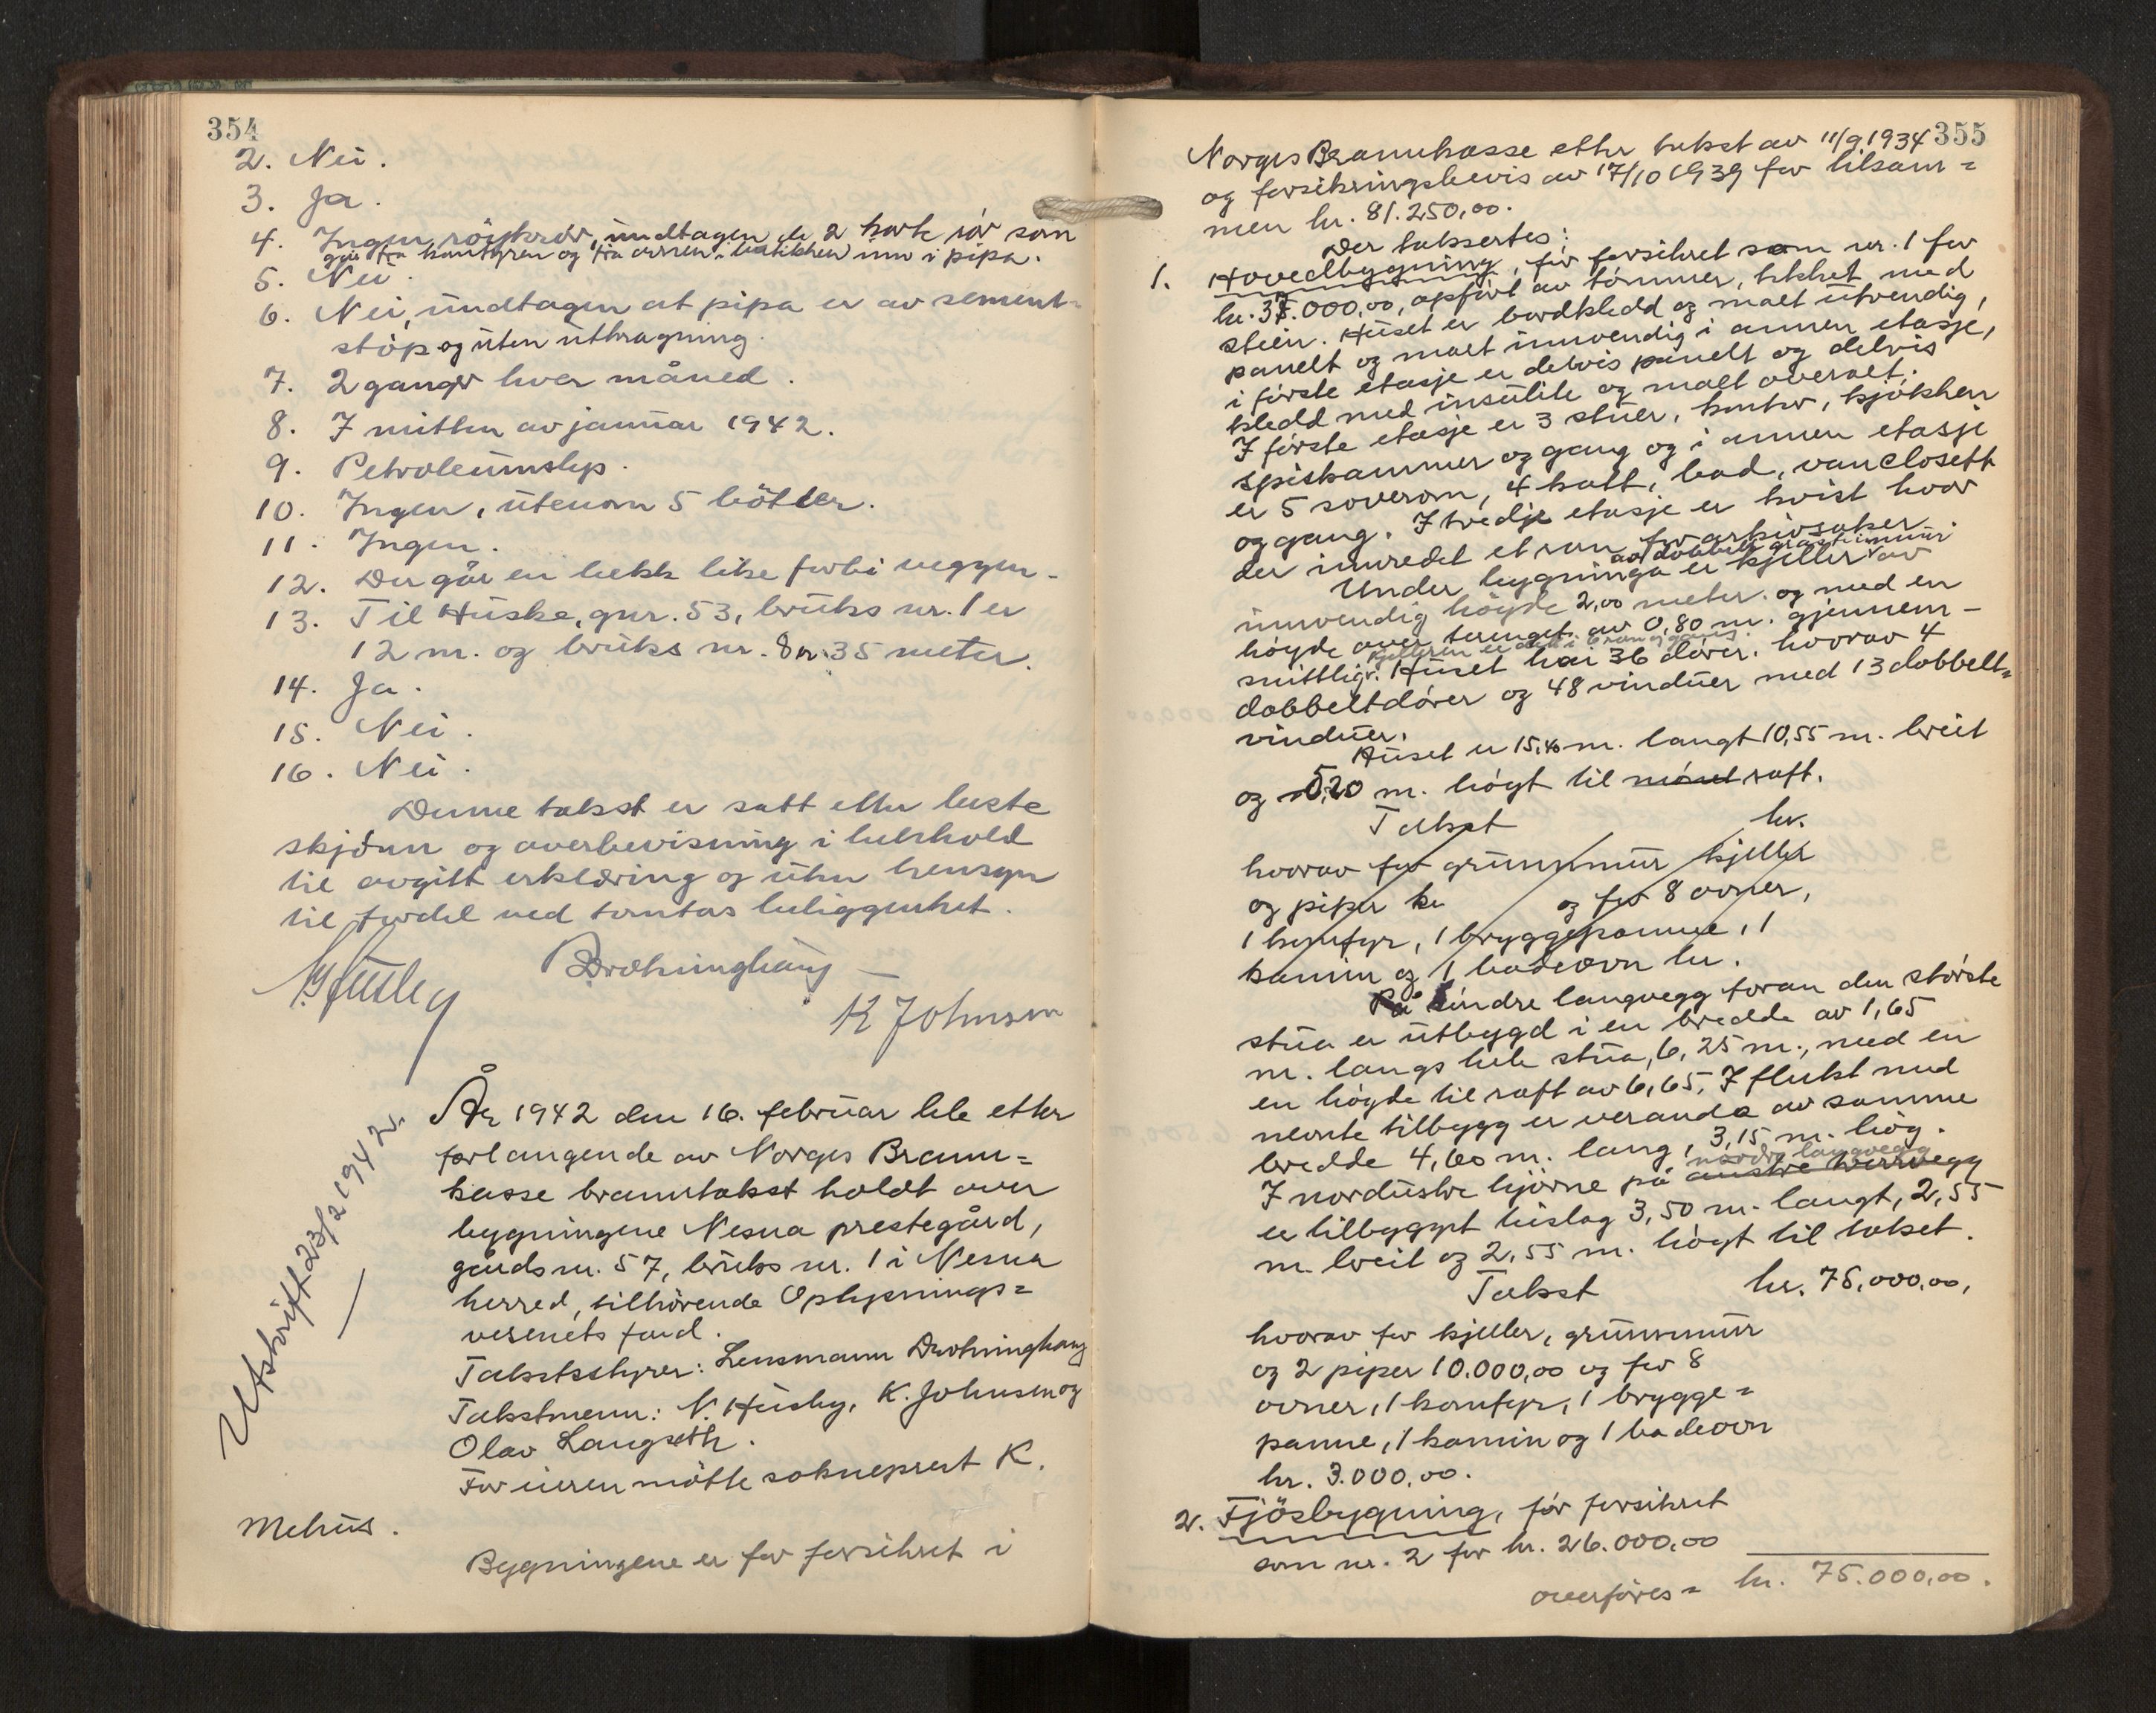 354
2. Nei.
3. Ja.
4. Ingen röykrör, undtagen de 2 korte rör som
går fra komfyren og fra ovnen i butikken inn i pipa.
5. Nei.
6. Nei, undtagen at pipa er av sement-
stöp og uten utkragning.
7. 2 ganger hver måned.
8. I mitten av januar 1942.
9. Petroleumslys.
10. Ingen, utenom 5 bötter.
11. Ingen.
12. Der går en bekk like forbi veggen.
13. Til Huske, gnr. 53, bruks nr. 1 er
12 m. og bruks nr. 8 35 meter.
14. Ja.
15. Nei.
16. Nei.
Denne takst er satt etter beste
skjönn og overbevisning i henhold
til avgitt erklæring og uten hensyn
til fordel ved tomtas beliggenhet.
N. Husby Drohninghaug
K Johnsen
Utskrift 23/2 1942.
År 1942 den 16. februar ble etter
forlangende av Norges Brann=
kasse branntakst holdt over
bygningene Nesna prestegård,
gårds nr. 57, bruks nr. 1 i Nesna
herred, tilhörende Oplysnings=
vesenets fond.
Takststyrer: Lensmann Drohninghaug
Takstmenn: N. Husby, K. Johnsen og
Olav Langseth.
For eieren mötte sokneprest K.
Mehus.
Bygningene er för forsikret i
355
Norges Brannkasse etter takst av 11/9 1934
og forsikringsbevis av 17/10 1939 for tilsam=
men kr. 81.250,00.
Der takseres:
1. Hovedbygning, för forsikret som nr. 1 for
kr. 35.000,00, opfört av tömmer, tekket med
stein. Huset er bordkledd og malt utvendig,
panelt og malt innvendig i annen etasje,
i förste etasje er delvis panelt og delvis
kledd med insulite og malt overalt.
I förste etasje er 3 stuer, kontor, kjökken
spiskammer og gang og i annen etasje
er 5 soverom, 4 kott, bad, vanclosett
og gang. I tredje etasje er kvist hvor
der innredet et rom for arkivsaker.
av dobbelt gråsteinmur
Under bygninga er kjeller av
innvendig höyde 2,00 meter. og med en
höyde over terrenget av 0,80 m. gjennem-
snittlig. Huset har 36 dörer. hvorav 4
dobbeltdörer og 48 vinduer med 13 dobbelt=
vinduer.
Huset er 15,40 m. langt 10,55 m. breit
og 5,20 m. högt til mönet raft.
Takst kr.
hvorav for grunnmur kjeller
og piper kr og for 8 ovner,
1 komfyr, 1 bryggepanne, 1
kamin og 1 badeovn kr.
På söndre langvegg foran den störste
stua er utbygd i en bredde av 1,65
m. langs hele stua, 6,25 m., med en
en högde til raft av 6,65. I flukt med
nevnte tilbygg er veranda av samme
bredde 4,60 m. lang, 3,15 m. hög.
nordre langvegg
I nordöstre hjörne på austre tverrvegg
er tilbygget bislag 3,50 m. langt, 2,55
m. breit og 2,55 m. högt til taket.
Takst kr. 75.000,00,
hvorav for kjeller, grunnmur
og 2 piper 10.000,00 og for 8
ovner, 1 komfyr, 1 brygge=
panne, 1 kamin og 1 badeovn
kr. 3.000,00.
2. Fjösbygning, för forsikret
som nr. 2 for kr. 26.000,00
overföres = kr. 75.000,00.